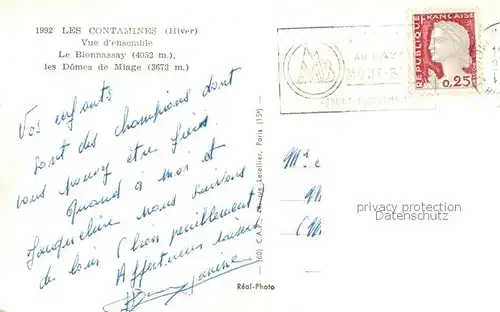 1992 LES CONTAMINES (Hiver)
Vue d'ensemble
Le Bionnassay (4052 m.),
les Dômes de Miage (3673 m.)
Vos enfants
sont des champions dont
vous pouvez être fiers.
Quand à moi et
Jacqueline nous suivons
de loin (bien péniblement)
Affectueux baisers
Janine
Réal-Photo
(60) C.A.P., rue Letellier, Paris (15e)
AU PAY
MONT-B
REPUBLIQUE FRANÇAISE
0,25
privacy protection
Datenschutz